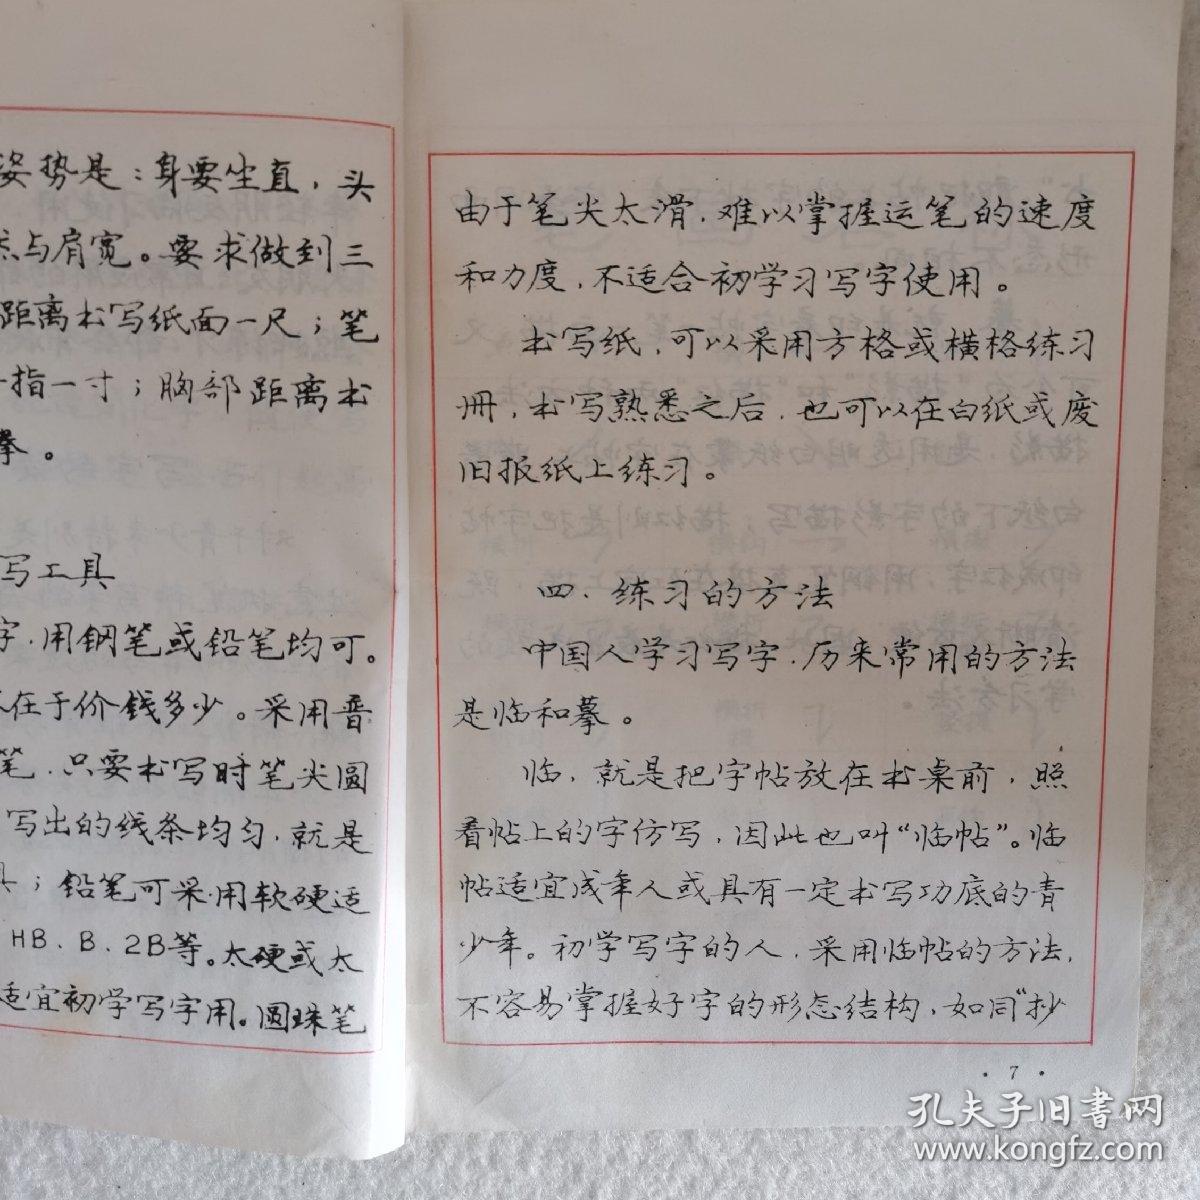 姿势是：身要坐直，头
与肩宽。要求做到三
距离书写纸面一尺；笔
一指一寸；胸部距离书
拳。
写工具
字，用钢笔或铅笔均可。
在于价钱多少。采用普
笔，只要书写时笔尖圆
写出的线条均匀，就是
；铅笔可采用软硬适
HB、B、2B等。太硬或太
适宜初学写字用。圆珠笔
由于笔尖太滑，难以掌握运笔的速度
和力度，不适合初学习写字使用。
书写纸，可以采用方格或横格练习
册，书写熟悉之后，也可以在白纸或废
旧报纸上练习。
四、练习的方法
中国人学习写字，历来常用的方法
是临和摹。
临，就是把字帖放在书桌前，照
着帖上的字仿写，因此也叫“临帖”。临
帖适宜成年人或具有一定书写功底的青
少年。初学写字的人，采用临帖的方法，
不容易掌握好字的形态结构，如同“抄
·7·
孔夫子旧書网
www.kongfz.com